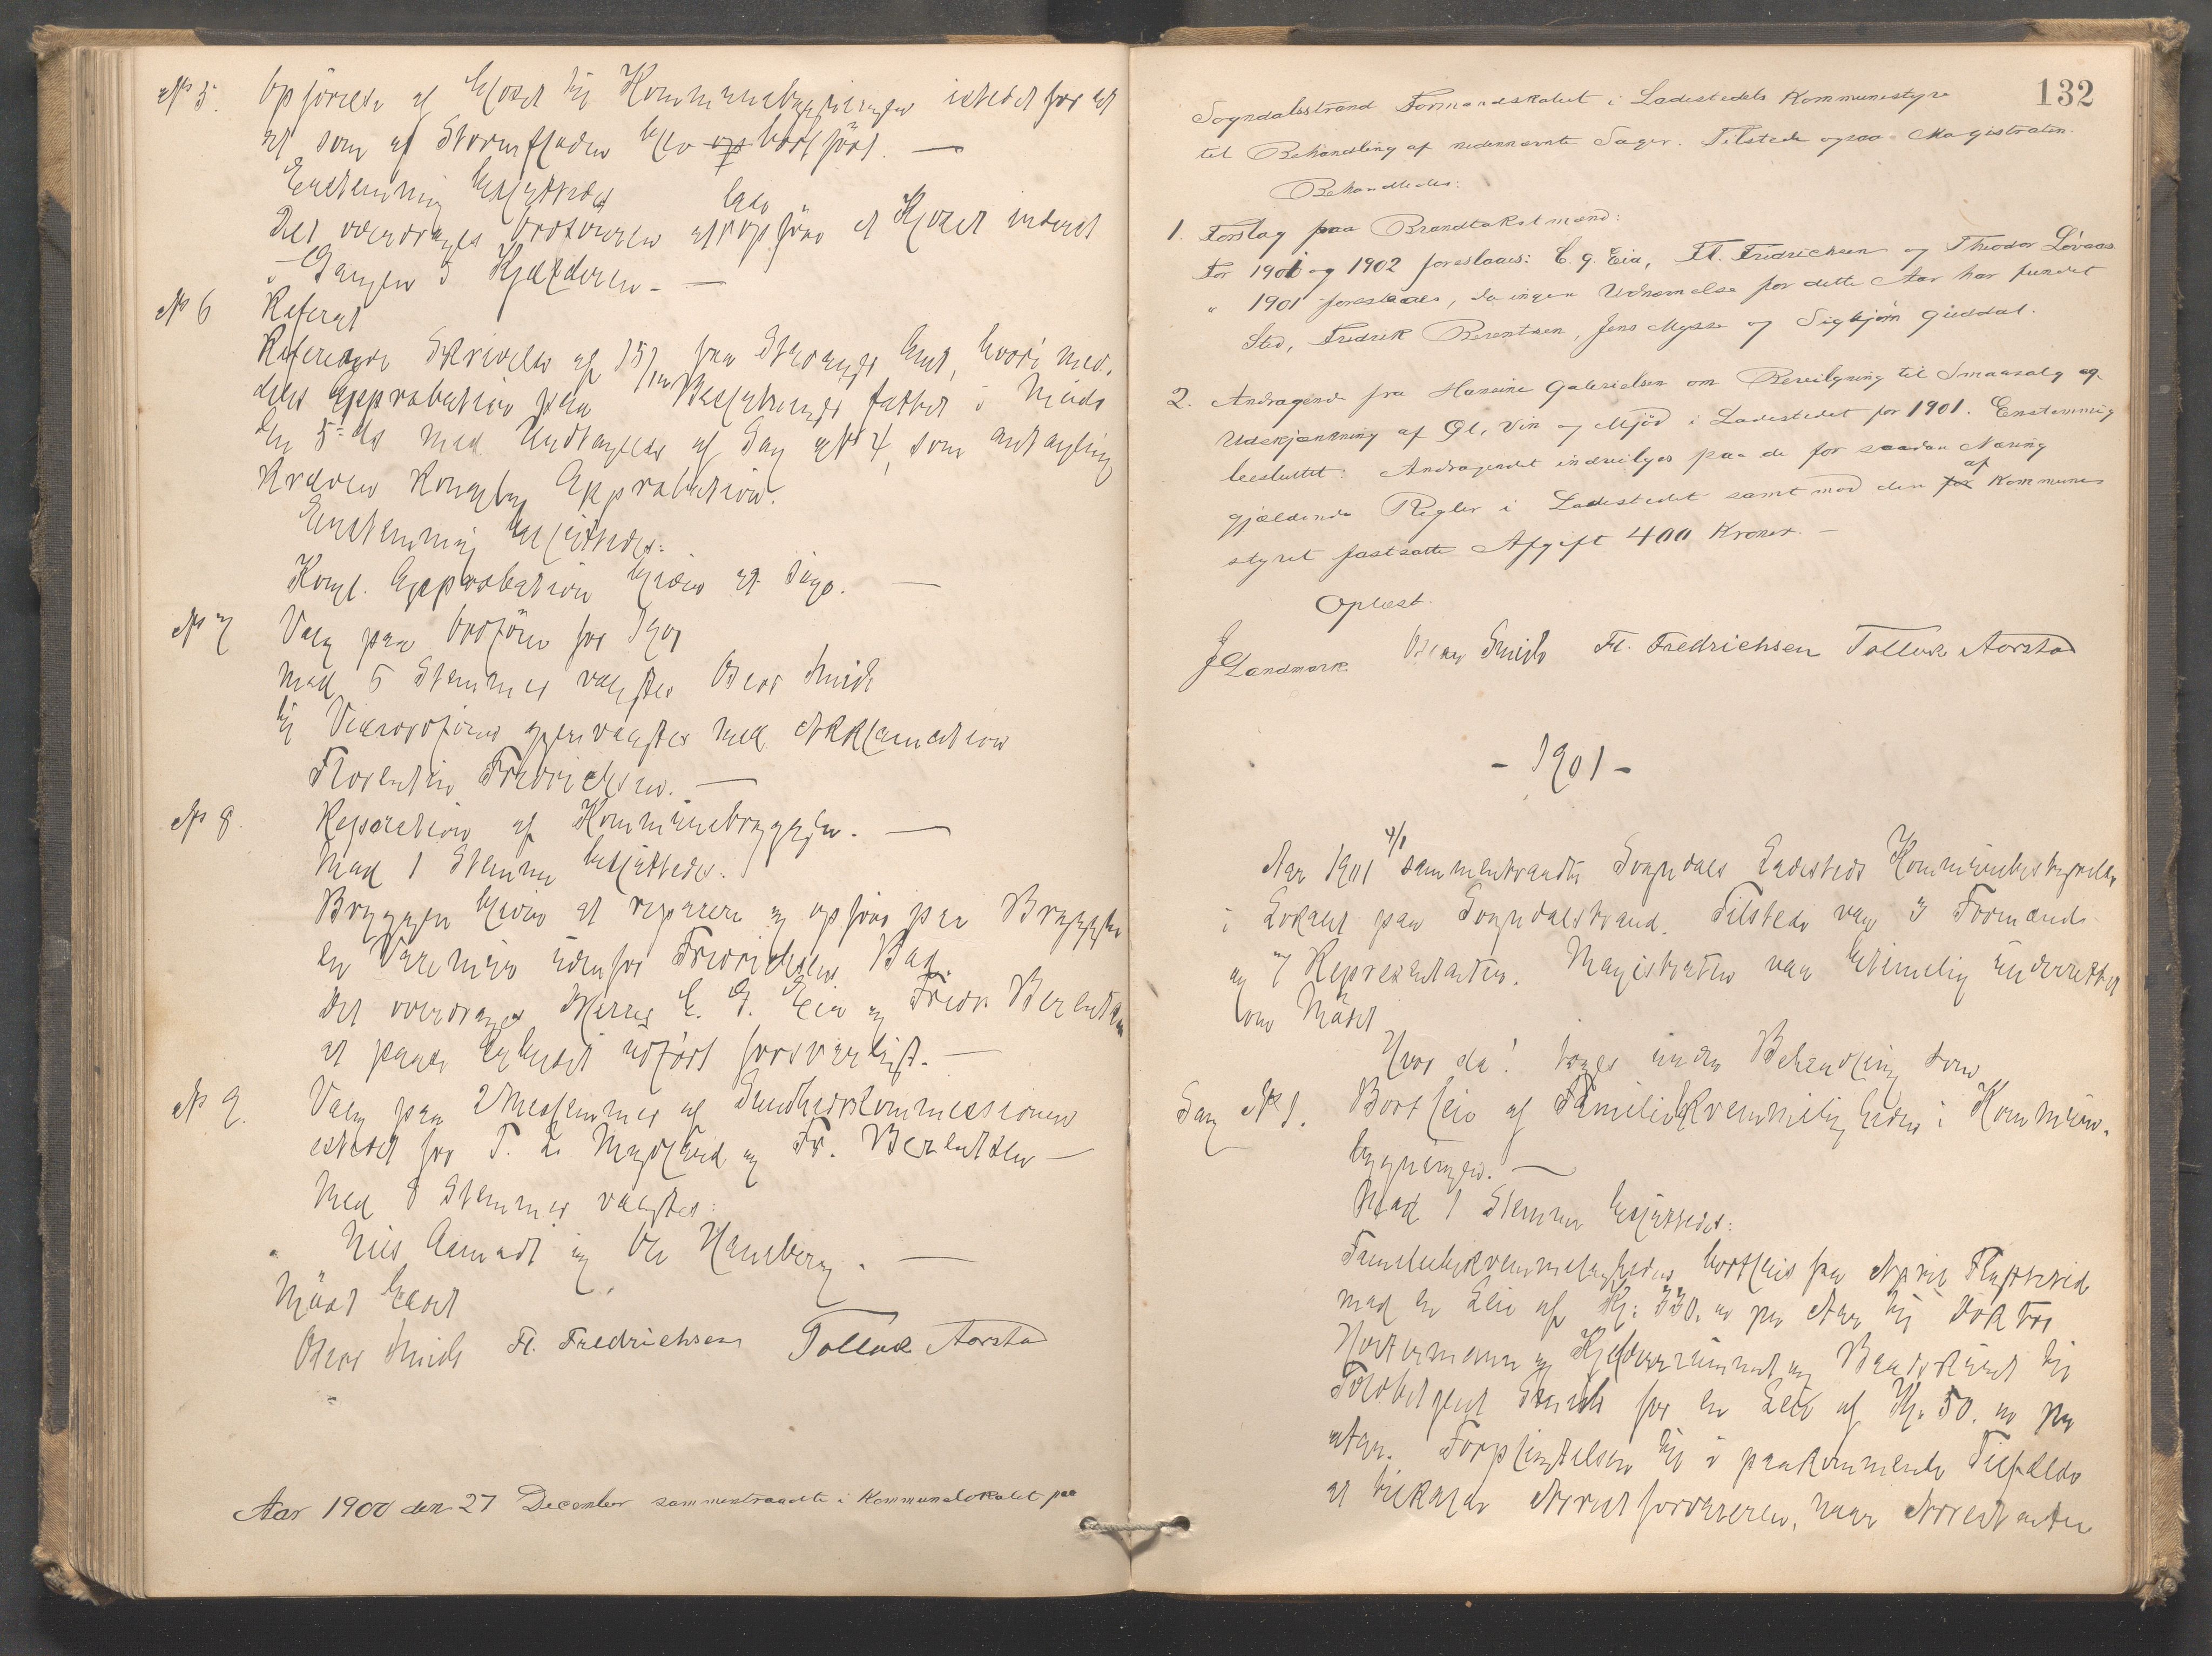 No 5. Opförelse af Kloset til Kommunebygningen istedet for et
et som af Stormfloden blev bortfört. —
Enstemmig besluttedes
lade
Det overdrages Ordföreren at opföre et Kloset inderst
i Gangen i Kjælderen. —
No 6 Referat
Refereredes Skrivelse af 15/12 fra Stavanger Amt, hvori med-
deles Approbation paa Beslutninger fattet i Möde
den 5te ds med Undtagelse af Sag No 4, som antagelig
kræver Kongelig Approbation.
Enstemmig besluttedes:
Kongl. Approbation bliver at söge. —
No 7 Valg paa Ordförer for 1901
Med 5 Stemmer valgtes Oscar Smith
til Viceordförer gjenvalgtes med Akklamation
Florentin Fredrichsen. —
No 8. Reparation af Kommunebryggen. —
Med 1 Stemme besluttedes:
Bryggen bliver at reparere og opföre paa Bryggen
en udenfor Fredrichsens
Det overdrages Herrer C. G. Eia og Fredr Berentsen
at paase Arbeidet udfört forsvarligt. —
No 9. Valg paa 2 Medlemmer af Sundhedskommissionen
istedet for T. L. Mydland og Fr. Berentsen —
Med 8 Stemmer valgtes:
Nils Aamodt og Ole Hamberg. —
Mödet hævet
Oscar Smith Fl. Fredrichsen Tollak Aarstad
Aar 1900 den 27 December sammentraadte i Kommunelokalet paa
132
Sogndalsstrand Formandskabet i Ladestedets Kommunestyre
til Behandling af nedennævnte Sager. Tilstede ogsaa Magistraten.
Behandledes:
1. Forslag paa Brandtakstmænd:
For 1901 og 1902 foreslaaes: C. G. Eia, Fl. Fredrichsen og Theodor Lövaas
" 1901 foreslaaes, da ingen Udnævnelse for dette Aar har fundet
Sted, Fredrik Berentsen, Jens Mysse og Sigbjörn Guddal.
2. Andragende fra Hansine Gabrielsen om Bevilgning til Smaasalg og
Udskjænkning af Øl, Vin og Mjød i Ladestedet for 1901. Enstemmig
besluttet: Andragendet indvilges paa de for saadan Næring
gjældende Regler i Ladestedet samt mod den for af Kommune-
styret fastsatte Afgift 400 Kroner. —
Oplæst.
J Landmark. Oscar Smith Fl. Fredrichsen Tollak Aarstad
- 1901 -
Aar 1901 4/1 sammentraadte Sogndals Ladesteds Kommunebestyrelse
i Lokalet paa Sogndalstrand. Tilstede var 3 Formænd
og 7 Repræsentanter. Magistraten var betimelig underrettet
om Mödet
Hvor da! toges under Behandling som
Sag No 1. Bortleie af Familiebekvemmeligheden i Kommune-
bygningen. —
Med 1 Stemme besluttedes:
Familiebekvemmeligheden bortleies fra April Flyttetid
med en Leie af Kr. 330.00 pr Aar til Doktor
og Kjelderrummet og til
Toldbetjent Smith for en Leie af Kr. 50.00 pr
Aar. Forpligtelsen til i paakommende Tilfælde
at Arrestforvareren, naar Arrestanter